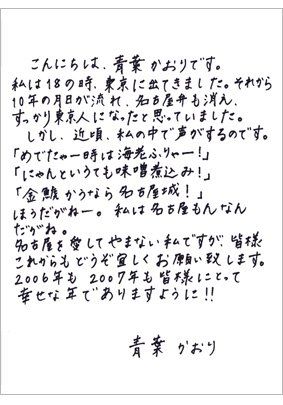 こんにちは、青葉かおりです。
私は18の時、東京に出てきました。それから
10年の月日が流れ、名古屋弁も消え、
すっかり東京人になったと思っていました。
しかし、近頃、私の中で声がするのです。
「めでたゃー時は海老ふりゃー!」
「にゃんというても味噌煮込み!」
「金鯱かうなら名古屋城!」
ほうだがねー。私は名古屋もんなん
だがね。
名古屋を愛してやまない私ですが、皆様
これからもどうぞ宜しくお願い致します。
2006年も2007年も皆様にとって
幸せな年でありますように!!
青葉かおり